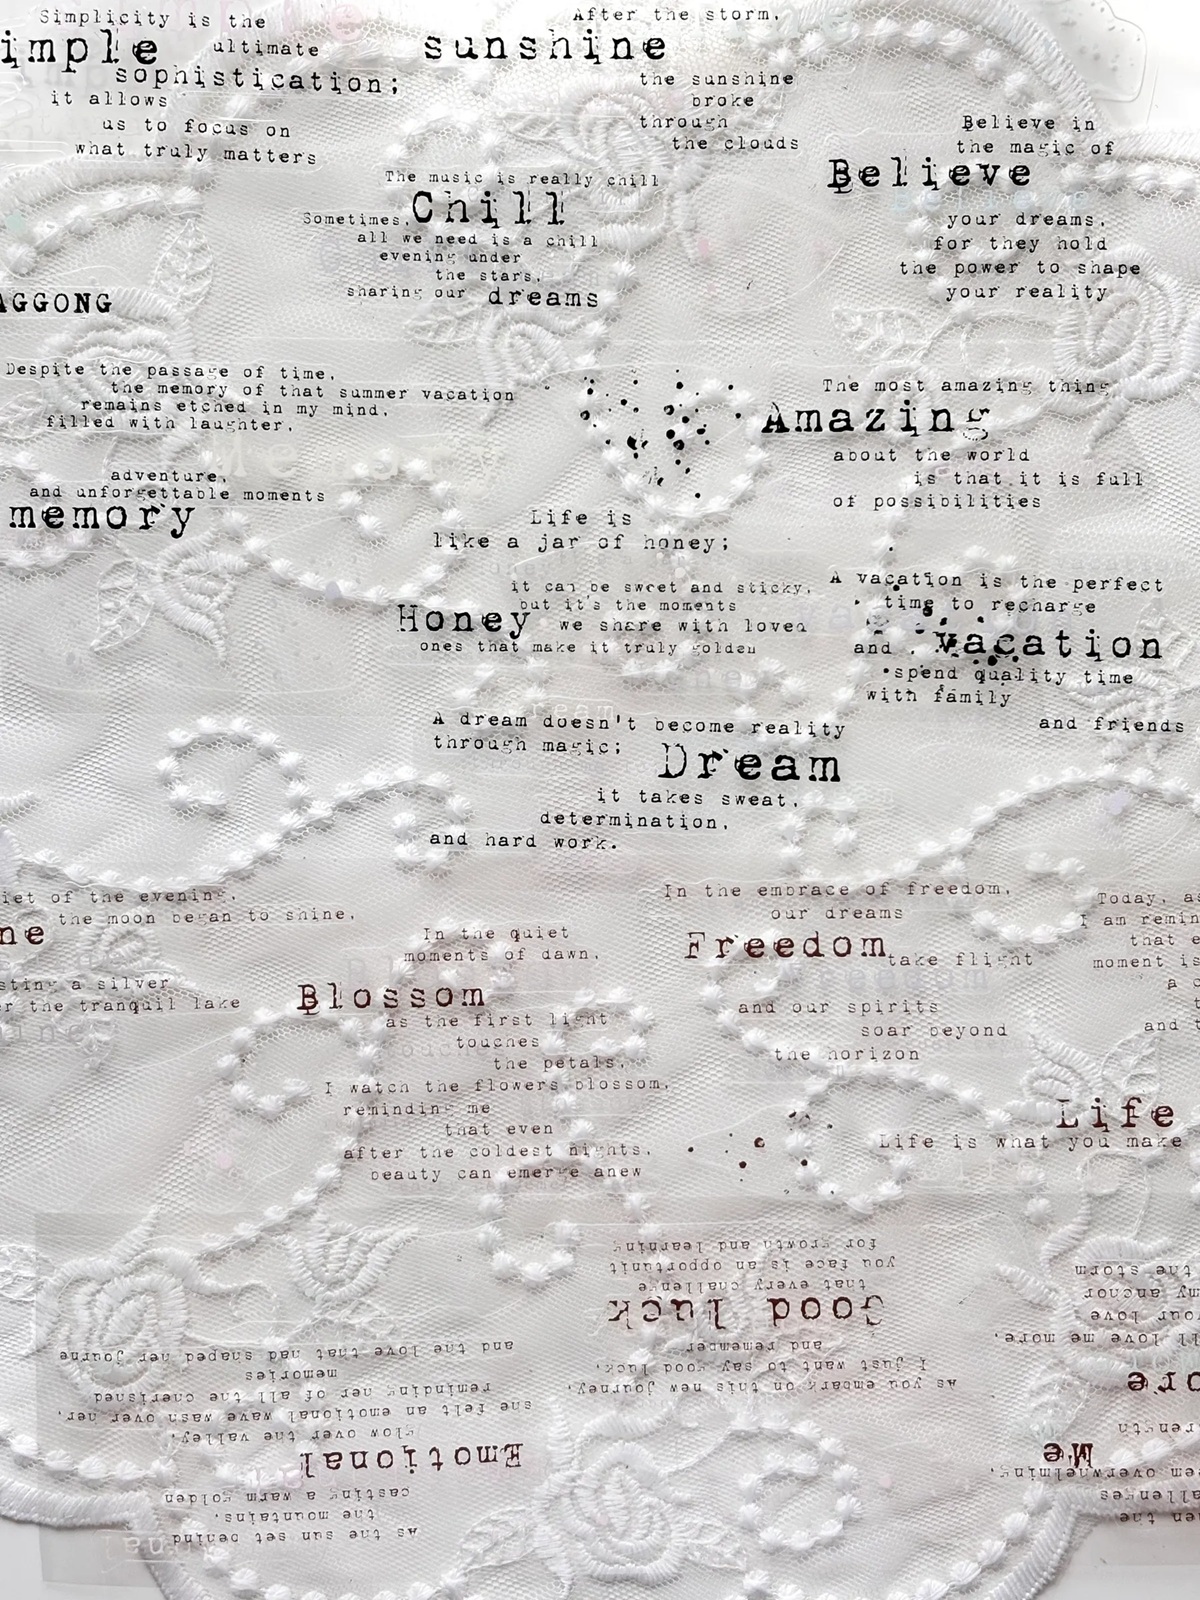 Simplicity is the
imple ultimate
sophistication;
it allows
us to focus on
what truly matters
After the storm,
sunshine
the sunshine
broke
through
the clouds
Believe in
the magic of
Believe
your dreams,
for they hold
the power to shape
your reality
The music is really chill
Sometimes, Chill
all we need is a chill
evening under
the stars,
sharing our dreams
AGGONG
Despite the passage of time,
the memory of that summer vacation
remains etched in my mind,
filled with laughter,
adventure,
and unforgettable moments
memory
The most amazing thing
Amazing
about the world
is that it is full
of possibilities
Life is
like a jar of honey;
it can be sweet and sticky,
but it's the moments
Honey we share with loved
ones that make it truly golden
A vacation is the perfect
time to recharge
and vacation
spend quality time
with family
and friends
A dream doesn't become reality
through magic;
Dream
it takes sweat,
determination,
and hard work.
iet of the evening,
the moon began to shine,
ne
sting a silver
r the tranquil lake
In the quiet
moments of dawn,
Blossom
as the first light
touches
the petals,
I watch the flowers blossom,
reminding me
that even
after the coldest nights,
beauty can emerge anew
In the embrace of freedom,
our dreams
Freedom
take flight
and our spirits
soar beyond
the horizon
Today, as
I am remin
that e
moment is
a c
t
and t
Life
Life is what you make
As you embark on this new journey,
I just want to say good luck
and remember
Good luck
that every challenge
you face is an opportunit
for growth and learning
As the sun set behind
the mountains,
casting a warm golden
Emotional
glow over the valley,
she felt an emotional wave wash over her,
reminding her of all the cherished
memories
and the love that had shaped her journe
hen the
allenges
eem overwhelming,
Me
rength
ore
ll love me more,
our love
my anchor
the storm